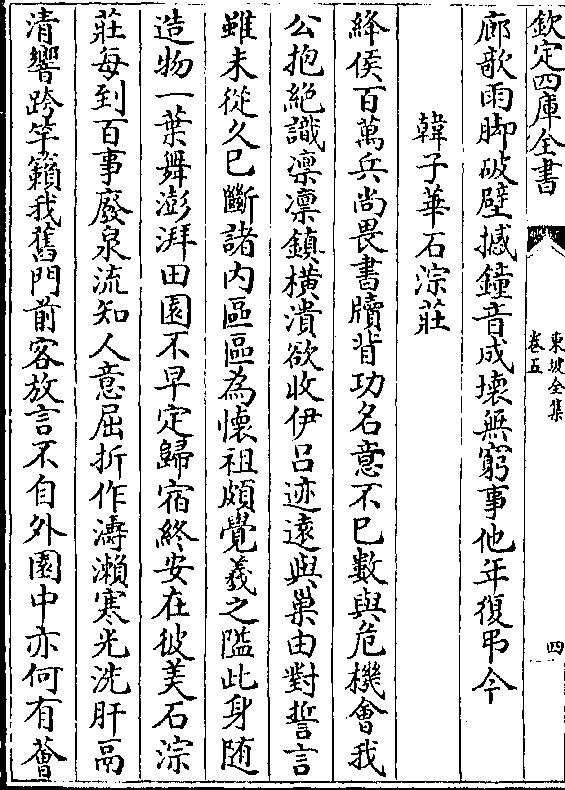 欽定四庫全書
東坡全集
卷五
四
廊歌雨脚破壁撼鐘音成壊無窮事他年復弔今
韓子華石淙莊
絳侯百萬兵尚畏書牘背功名意不已數與危機會我
公抱絶識凛凛鎮橫潰欲收伊吕迹逺與巢由對誓言
雖未從久已斷諸内區區為懐祖頗覺羲之隘此身随
造物一葉舞澎湃田園不早定歸宿終安在彼美石淙
莊每到百事廢泉流知人意屈折作濤瀨寒光洗肝鬲
清響跨竽籟我舊門前客放言不自外園中亦何有薈